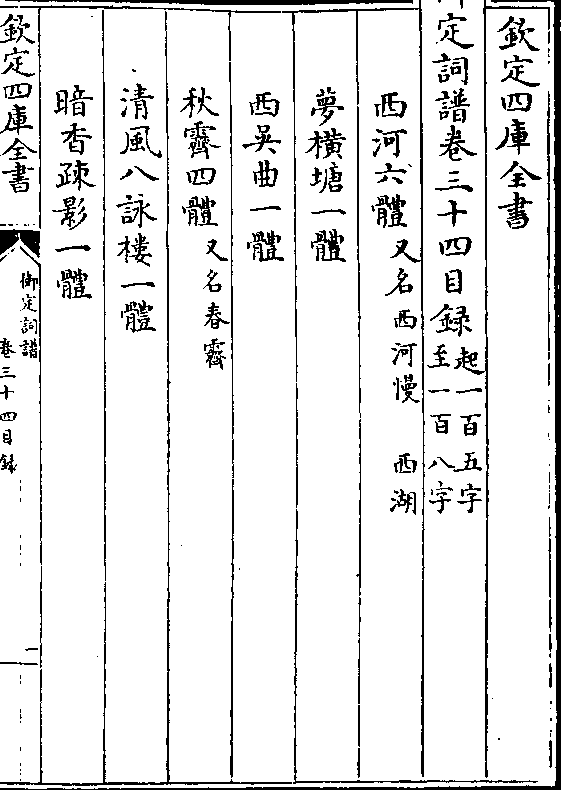 欽定四庫全書
御定詞譜卷三十四目録 起一百五字 至一百八字
西河六體 又名西河慢 西湖
夢橫塘一體
西吳曲一體
秋霽四體 又名春霽
清風八詠樓一體
暗香疎影一體
欽定四庫全書
御定詞譜
卷三十四目録
一